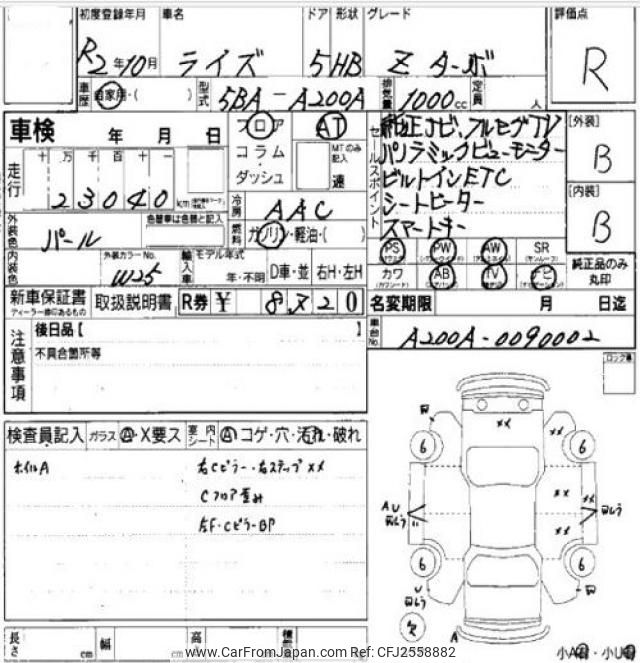 初度登録年月 車名 ドア 形状 グレード 評価点
R2年10月 ライズ 5 HB Z ターボ R
車歴 自家用・( ) 型式 5BA-A200A 排気量 1000cc 定員 人
車検 年 月 日
フロア AT
コラム MTのみ記入
ダッシュ 速
セールスポイント
純正ナビ、フルセグTV
パノラミックビューモニター
ビルトインETC
シートヒーター
スマートキー
[外装]
B
[内装]
B
走行 十 万 千 百 十 一
23040 km
冷房 AAC
外装色 パール 色替車は色替と記入
燃料 ガソリン・軽油・( )
内装色 外装カラーNo. W25
輸入車 モデル年式 年・不明 D車・並 右H・左H
PS PW AW SR
カワ AB TV ナビ
純正品のみ丸印
新車保証書 取扱説明書 R券 ¥ 8,720
ディーラー印のあるもの
名変期限 月 日迄
車台No. A200A-0090002
注意事項
後日品【 】
不具合箇所等
検査員記入 ガラス A・X要ス 室内シート A コゲ・穴・汚れ・破れ
ホイルA
右Cピラー・右ステップ XX
Cフロア歪み
左F・Cピラー BP
6 6 6 6
XX XX XX XX XX
AU
U
A
長さ cm 幅 cm 高
www.CarFromJapan.com Ref: CFJ2558882